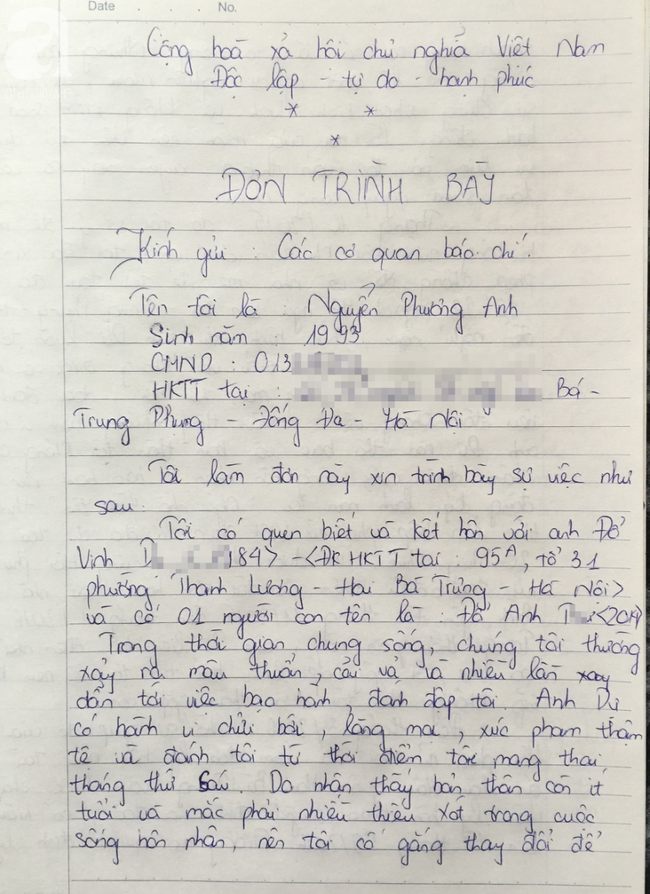 Date . . . No.
Cộng hoà xả hội chủ nghĩa Việt Nam
Độc lập - tự do - hạnh phúc
* *
*
ĐƠN TRÌNH BÀY
Kính gửi : Các cơ quan báo chí.
Tên tôi là : Nguyễn Phương Anh
Sinh năm : 1993
CMND : 013
HKTT tại : Bá -
Trung Phụng - Đống Đa - Hà Nội
Tôi làm đơn này xin trình bày sự việc như
sau.
Tôi có quen biết và kết hôn với anh Đỗ
Vinh D 84> - <ĐK HKTT tại : 95A, tổ 31
phường Thanh Lương - Hai Bà Trưng - Hà Nội>
và có 01 người con tên là : Đỗ Anh T
Trong thời gian chung sống, chúng tôi thường
xảy ra mâu thuẫn, cãi vả và nhiều lần xoay
dẫn tới việc bạo hành, đánh đập tôi. Anh
có hành vi chửi bới, lăng mạ, xúc phạm thậm
tệ và đánh tôi từ thời điểm tôi mang thai
tháng thứ Sáu. Do nhận thấy bản thân còn ít
tuổi và mắc phải nhiều thiếu xót trong cuộc
sống hôn nhân, nên tôi cố gắng thay đổi để